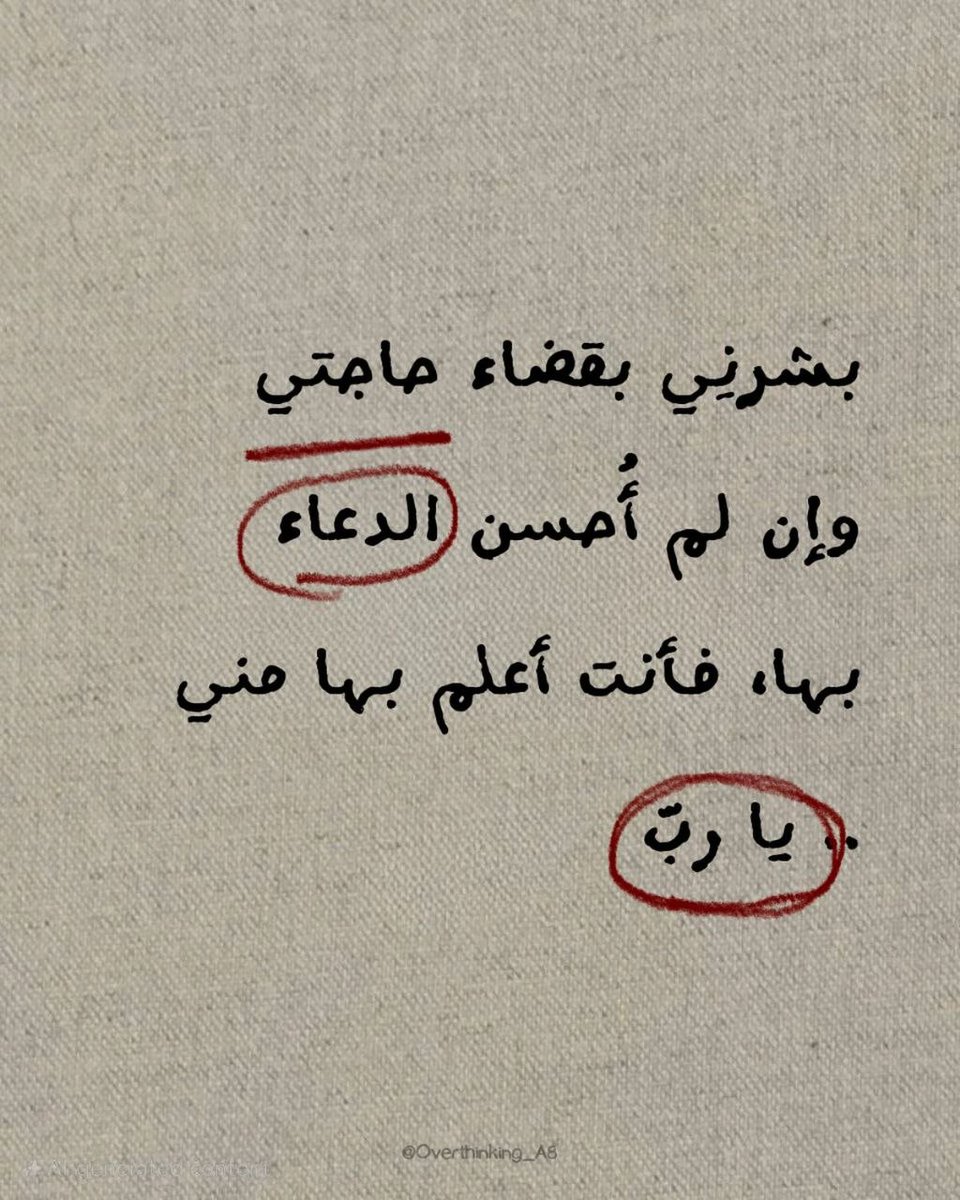 بشرنِي بقضاء حاجتي
وإن لم أُحسن الدعاء
بها، فأنت أعلم بها مني
.. يا ربّ
@Overthinking_A8
AI-generated content